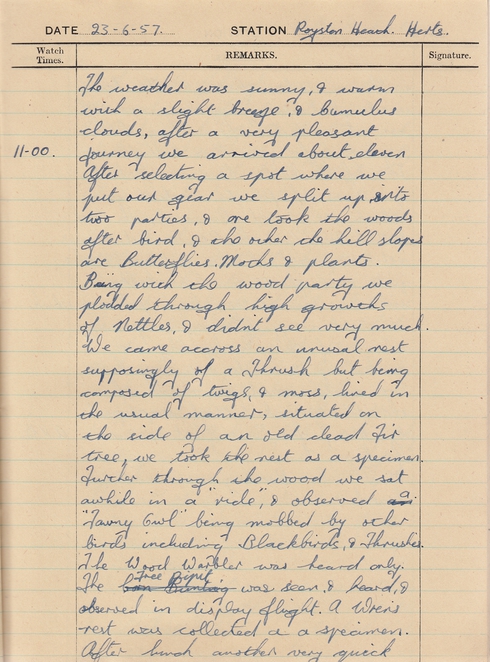 DATE 23-6-57. STATION Royston Heath. Herts.
Watch Times. REMARKS. Signature.
The weather was sunny, & warm
with a slight breeze, & Cumulus
clouds, after a very pleasant
11-00. journey we arrived about eleven
After selecting a spot where we
put our gear we split up into
two parties, & one took the woods
after bird, & the other the hill slopes
are Butterflies. Moths & plants.
Being with the wood party we
plodded through high growths
of Nettles, & didn't see very much.
We came accross an unusual nest
supposingly of a Thrush but being
composed of twigs, & moss, lined in
the usual manner, situated on
the side of an old dead Fir
tree, we took the nest as a specimen.
Further through the wood we sat
awhile in a "ride", & observed a
"Tawny Owl" being mobbed by other
birds including Blackbirds, & Thrushes.
The Wood Warbler was heard only.
The Tree Pipit was seen, & heard, &
observed in display flight. A Wren's
nest was collected a a specimen.
After lunch another very quick